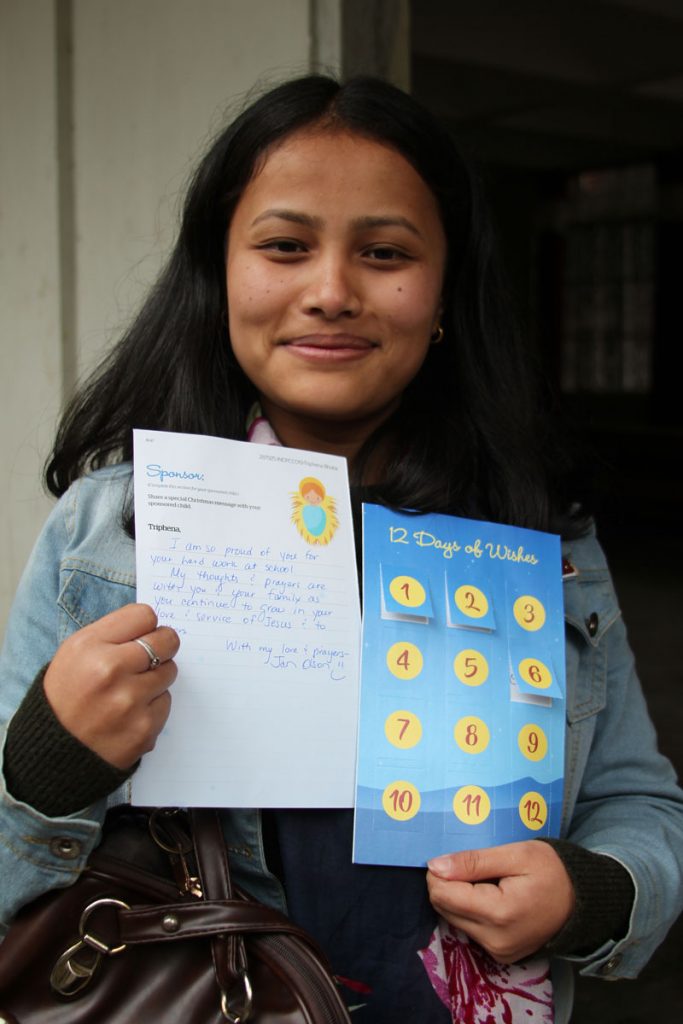 Sponsor:
Share a special Christmas message with your
sponsored child.
Triphena,
I am so proud of you for
your hard work at school
My thoughts & prayers are
with you & your family as
you continue to grow in your
love & service of Jesus & to
With my love & prayers-
Jan Olson
12 Days of Wishes
1 2 3
4 5 6
7 8 9
10 11 12